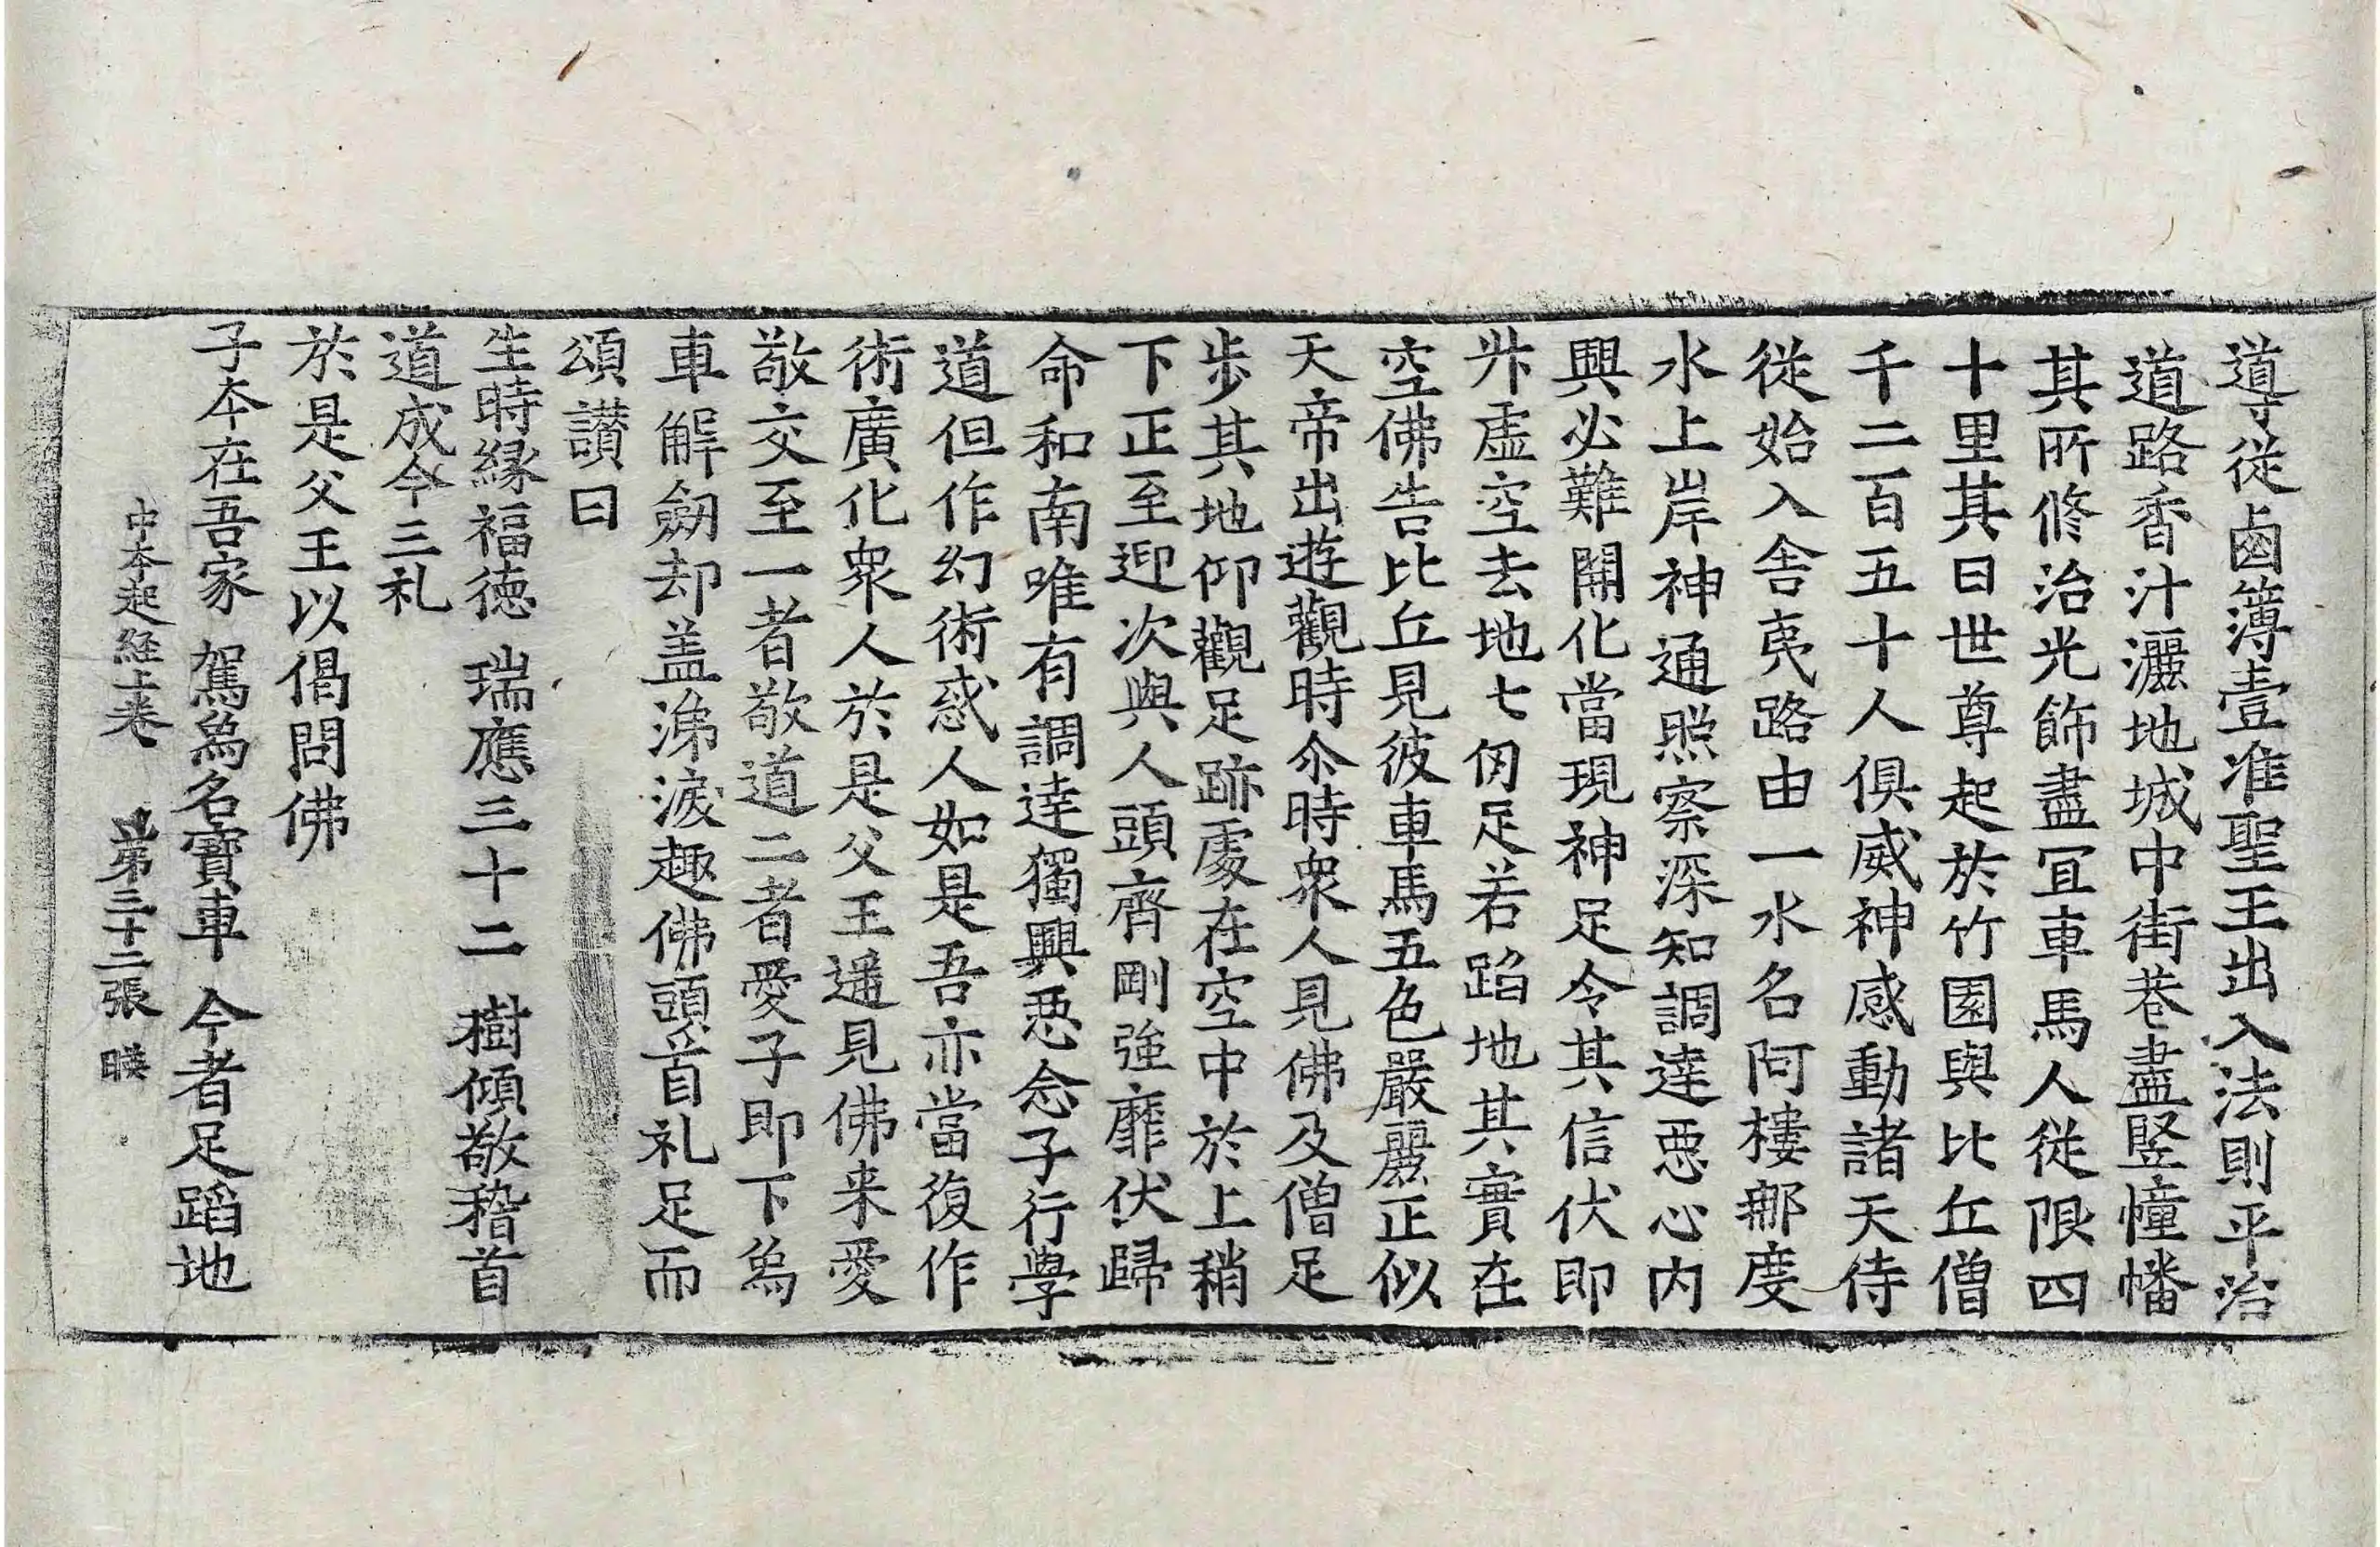 導從鹵簿壹准聖王出入法則平治
道路香汁灑地城中街巷盡竪幢幡
其所修治光飾盡冝車馬人從限四
十里其日世尊起於竹園與比丘僧
千二百五十人俱威神感動諸天侍
從始入舍夷路由一水名阿樓那度
水上岸神通照察深知調達惡心内
興必難開化當現神足令其信伏即
外虛空去地七仞足若蹈地其實在
空佛告比丘見彼車馬五色嚴麗正似
天帝出遊觀時尒時衆人見佛及僧足
步其地仰觀足跡處在空中於上稍
下正至迎次與人頭齊剛強靡伏歸
命和南唯有調達獨興惡念子行學
道但作幻術惑人如是吾亦當復作
術廣化衆人於是父王遥見佛来愛
敬交至一者敬道二者愛子即下爲
車解劒却盖涕淚趣佛頭首礼足而
頌讃曰
生時緣福德 瑞應三十二 樹傾敬稽首
道成今三礼
於是父王以偈問佛
子本在吾家 駕爲名寶車 今者足蹈地
中本起経上卷 第三十二張 暎